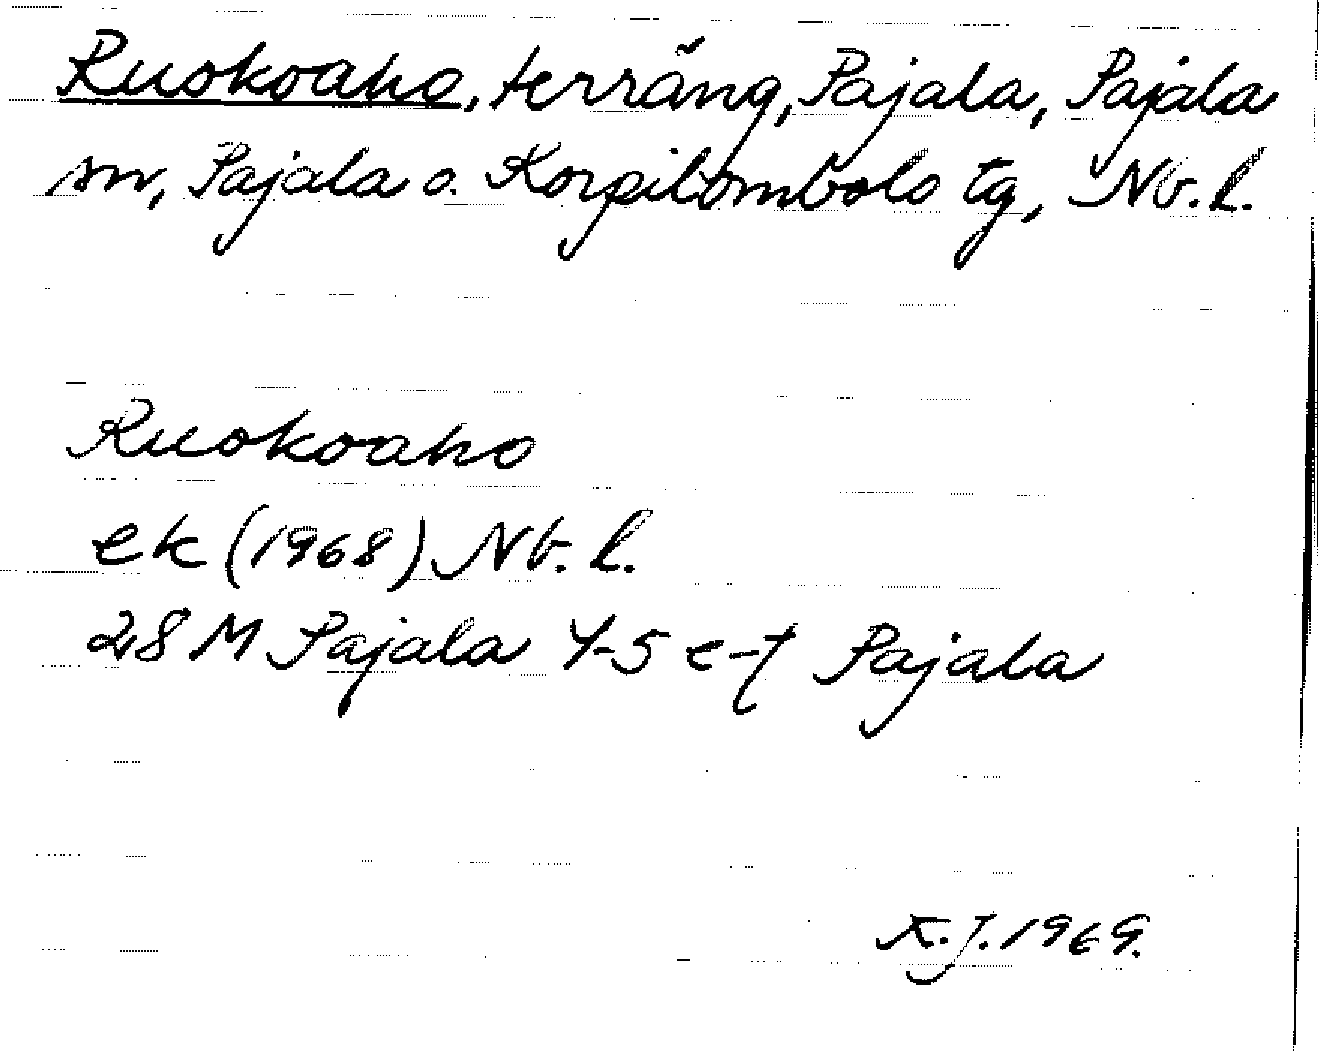 Ruokoaho, terräng, Pajala, Pajala
sn, Pajala o. Korpilombolo tg, Nb. l.
Ruokoaho
ek (1968) Nb. l.
28 M Pajala 4-5 e-f Pajala
K.J. 1969.